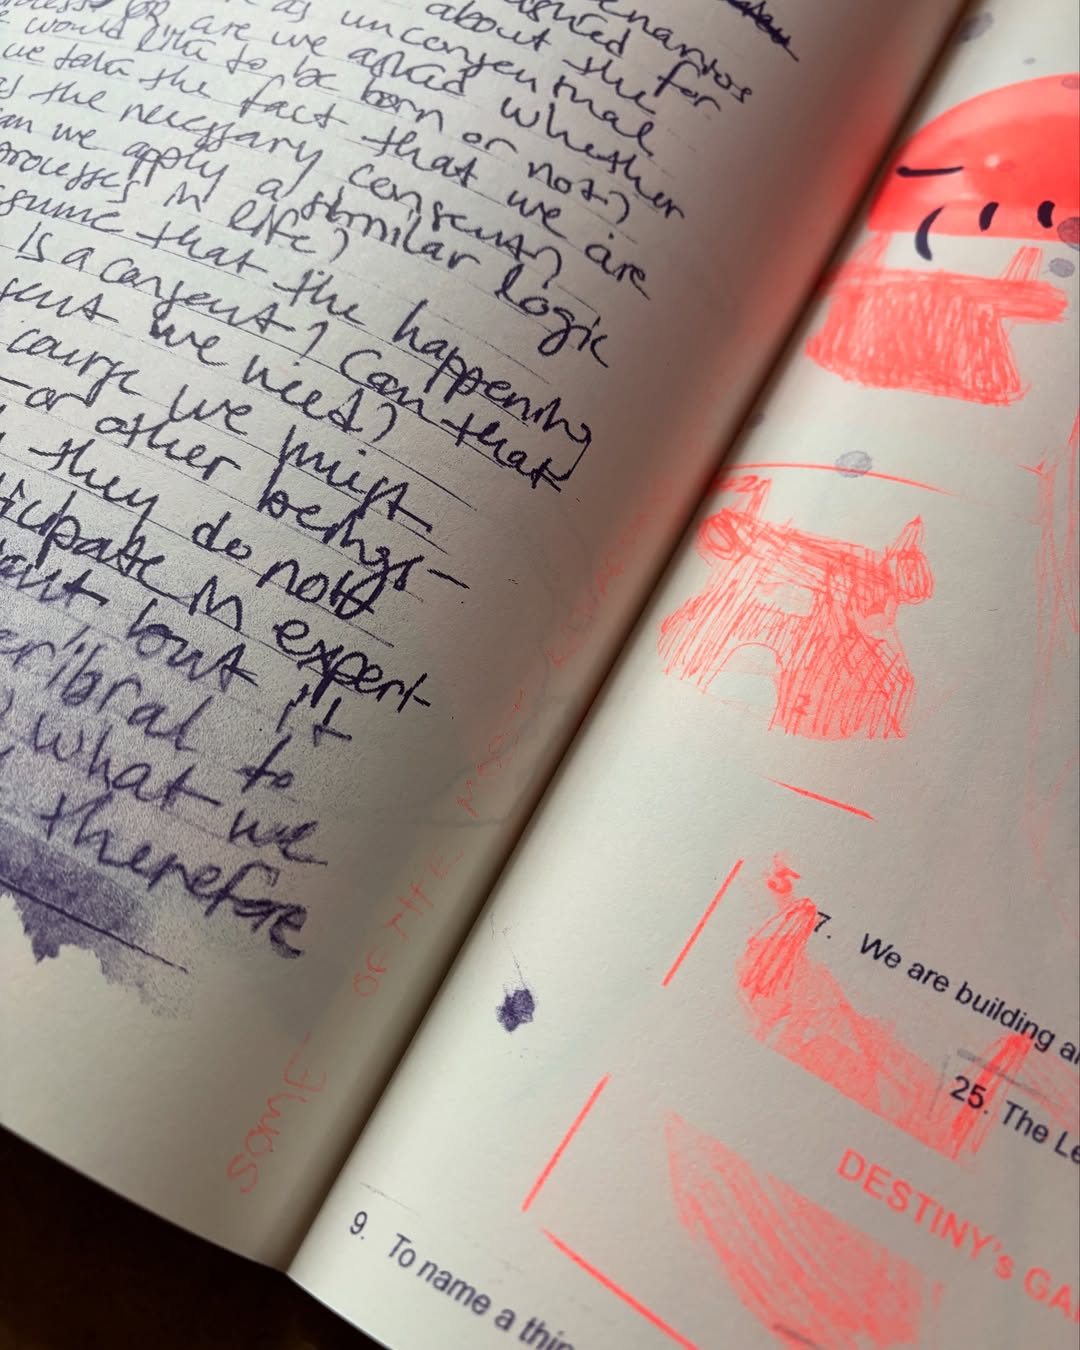 scenarios
about the for
as unconsentual
are we asked whether
would like to be born or not?
we take the fact that we are
as the necessary consent?
can we apply a similar logic
processes in life?
assume that the happening
is a consent? Can that
we need?
course we must
or other beings-
they do not
participate in expert-
but it
to
what we
therefore
SOME OF THE MOST
5
7. We are building
25. The Le
DESTINY's GA
9. To name a thin